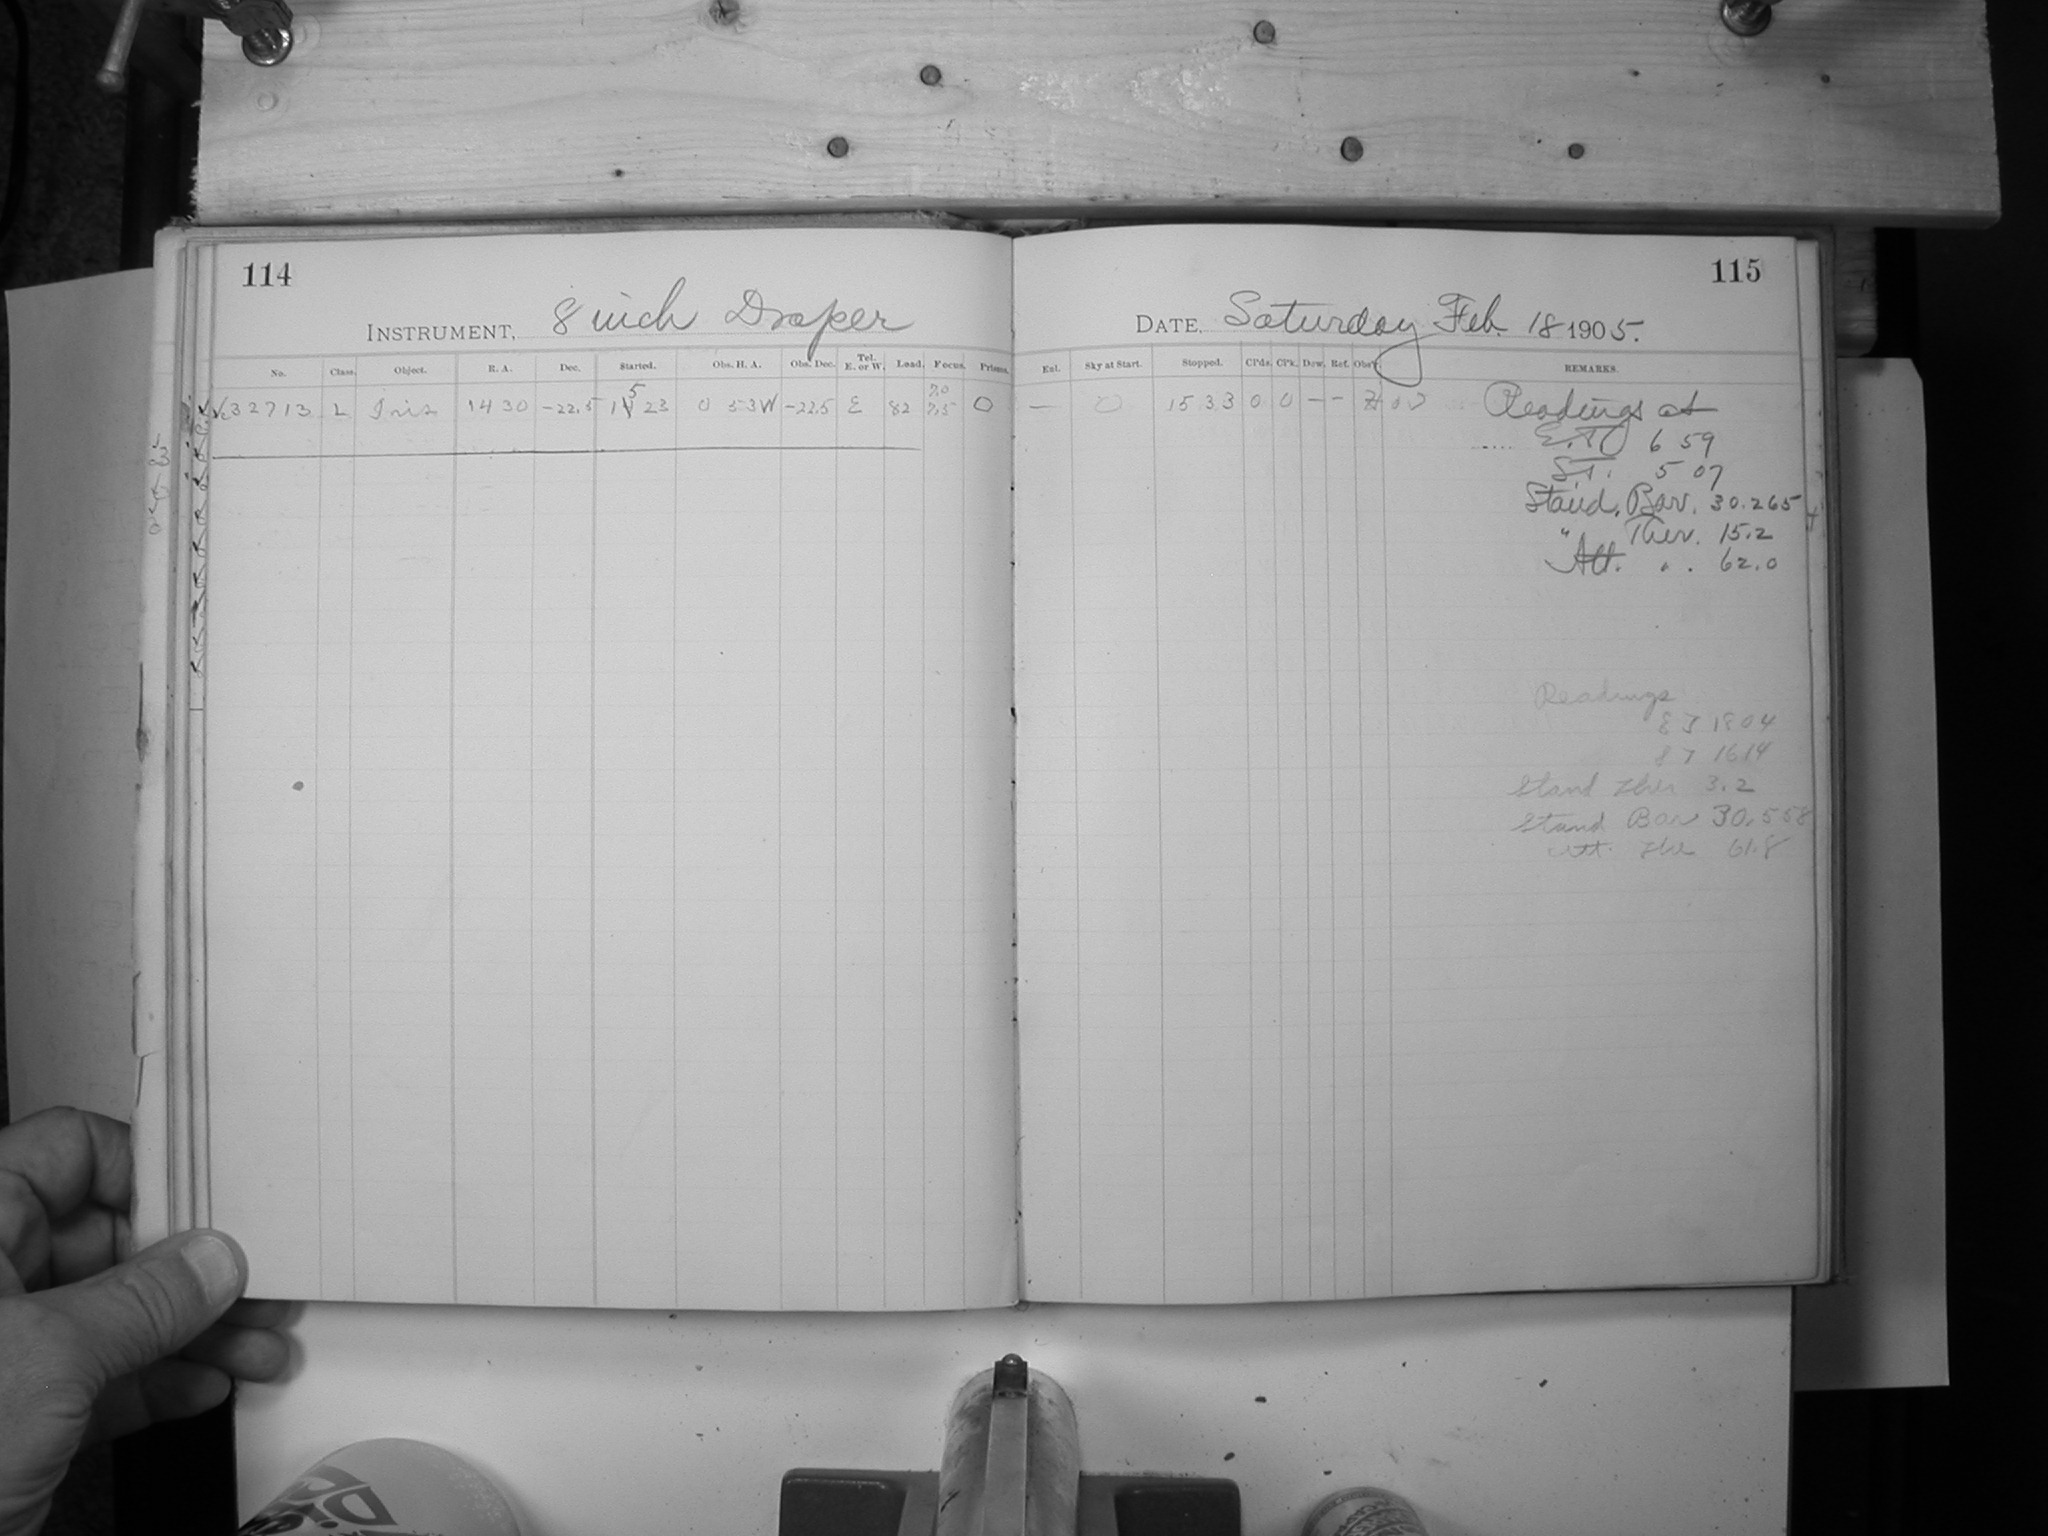 114
INSTRUMENT, 8 inch Draper
No. Class. Object. R. A. Dec. Started. Obs. H. A. Obs. Dec. Tel. E. or W. Load. Focus. Prisms.
32713 L Iris 14 30 -22.5 15 23 0 53W -22.5 E 82 7.0 7.5 0
115
DATE, Saturday Feb. 18 1905.
Ent. Sky at Start. Stopped. Cl'ds. Cl'k. Dew. Ref. Obs'r. REMARKS.
— 0 15 33 0 0 — — Readings at
E.T. 6 59
S.T. 5 07
Stand. Bar. 30.265
" Ther. 15.2
Att. " . 62.0
Readings
E T 18 04
S T 16 14
Stand Ther 3.2
Stand Bar 30.558
Att. The 61.8